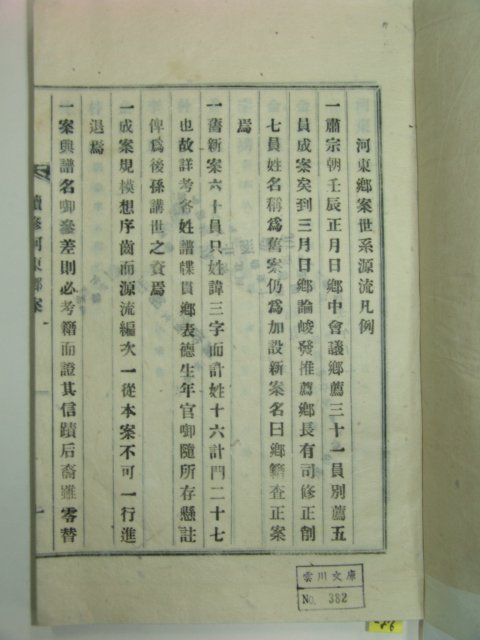 河東鄕案世系源流凡例
一肅宗朝壬辰正月日鄕中會議鄕薦三十一員別薦五
員成案矣到三月日鄕論峻發推薦鄕長有司修正削
七員姓名稱爲舊案仍爲加設新案名曰鄕籍査正案
焉
一舊新案六十員只姓諱三字而計姓十六計門二十七
也故詳考各姓譜牒貫鄕表德生年官啣隨所存懸註
俾爲後孫講世之資焉
一成案規模想序齒而源流編次一從本案不可一行進
退焉
一案與譜名啣參差則必考籍而證其信蹟后裔雖零替
續修河東鄕案
一
雲川文庫
No. 382